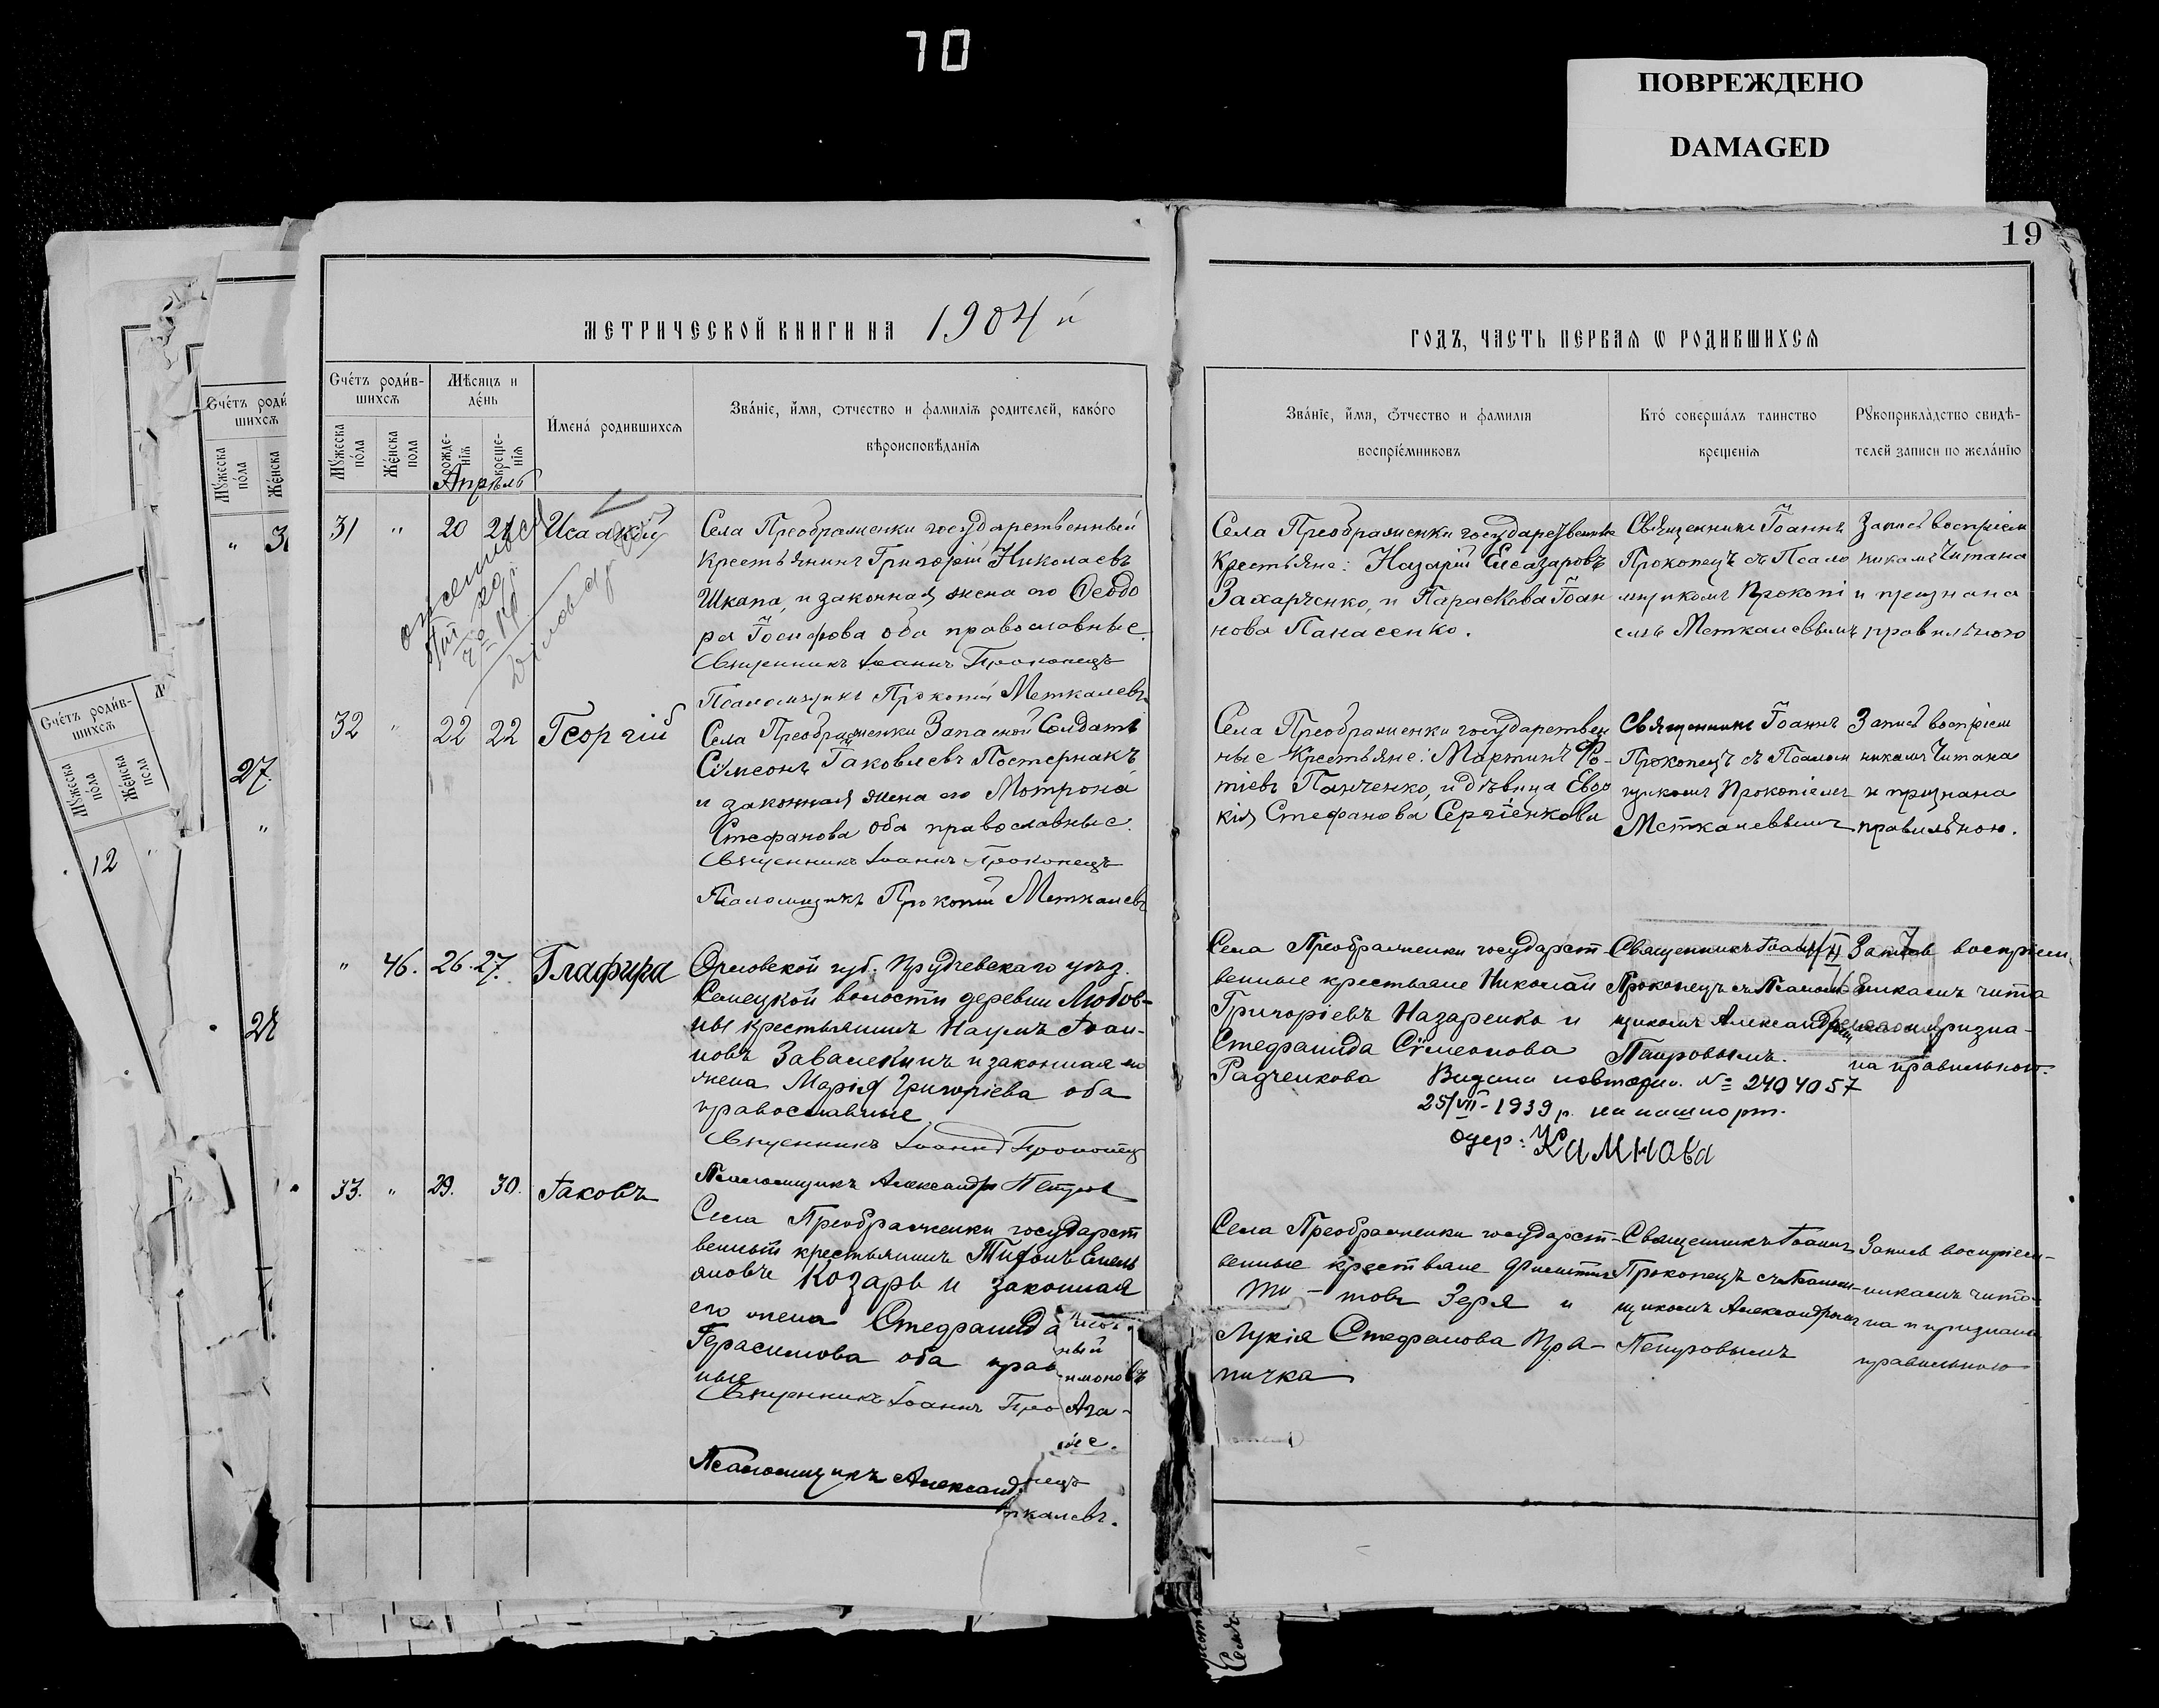 70
ПОВРЕЖДЕНО
DAMAGED
19
МЕТРИЧЕСКОЙ КНИГИ НА 1904 й
ГОДЪ, ЧАСТЬ ПЕРВАЯ Ѡ РОДИВШИХСЯ
Счéтъ роди́в-
шихсѧ
Мѣсяцъ и
дéнь
Мꙋ́жеска
пóла
Жéнска
пола
рожде-
нїѧ
креще-
нїѧ
И́менá родившихсѧ
Звáнїе, и́мя, ѻтчество и фамилїѧ родителей, какóго
вѣроисповѣданїѧ
Звáнїе, и́мя, ѻ́тчество и фамилїя
воспрїéмниковъ
Ктó совершáлъ таинство
крещенїѧ
Рꙋкоприклàдство свидѣ-
телей записи по желáнїю
Апрѣль
31 " 20 21 Исаакій
Села Преображенки государственный
крестьянинъ Григорій Николаевъ
Шкапа, и законная жена его Ѳеодо
ра Іосифова оба православные.
Священникъ Іоаннъ Прокопецъ
Псаломщикъ Прокопій Меткалевъ
Села Преображенки государственные
Крестьяне: Назарій Елеазаровъ
Захарченко, и Параскева Іоан
нова Панасенко.
Священникъ Іоаннъ
Прокопецъ съ Псало
мщикомъ Прокопі
емъ Меткалевымъ
Запись воспріем
никамъ Читана
и признана
правильною
32 " 22 22 Георгій
Села Преображенки Запасной Солдатъ
Сѵмеонъ Іаковлевъ Постернакъ
и законная жена его Мотрона
Стефанова оба православные.
Священникъ Іоаннъ Прокопецъ
Псаломщикъ Прокопій Меткалевъ
Села Преображенки государствен
ные Крестьяне: Мартинъ Фо-
тіевъ Панченко, и дѣвица Евдо
кія Стефанова Сергіенкова
Священникъ Іоаннъ
Прокопецъ съ Псалом
щикомъ Прокопіемъ
Меткалевымъ
Запись воспріем
никамъ Читана
и признана
правильною.
" 46. 26. 27. Глафира
Орловской губ. Трубчевскаго уѣзд.
Семецкой волости деревни Любов-
ны крестьянинъ Наумъ Іоан-
новъ Завалекинъ и законная его
жена Марія Григоріева оба
православные
Священникъ Іоаннъ Прокопецъ
Псаломщикъ Александръ Петров
Села Преображенки государст
венные крестьяне Николай
Григоріевъ Назаренко и
Стефанида Сѵмеонова
Радченкова
Священникъ Іоаннъ
Прокопецъ съ Псалом-
щикомъ Александромъ
Петровымъ.
Запись воспріем-
никамъ чита
на и призна-
на правильною.
Видана повторно. № 2404057
25/VII-1939 р. на пашпорт.
Камнова
33. " 29. 30. Іаковъ
Села Преображенки государст
венный крестьянинъ Тифонъ Емель
яновъ Козарь и законная
его жена Стефанида
Герасимова оба прав
ные
Священникъ Іоаннъ Про
Псаломщикъ Александ
ный
Ага-
ые.
пецъ
ткалевъ.
Села Преображенки государст-
венные крестьяне
товъ Зеря и
Лукія Стефанова Пра-
пичка
Священникъ Іоаннъ
Прокопецъ съ Псалом-
щикомъ Александромъ
Петровымъ
Запись воспріем-
никамъ чита-
на и признана
правильною
Счéтъ роди́в-
шихсѧ
Мꙋ́жеска
пóла
Жéнска
27.
"
28
12